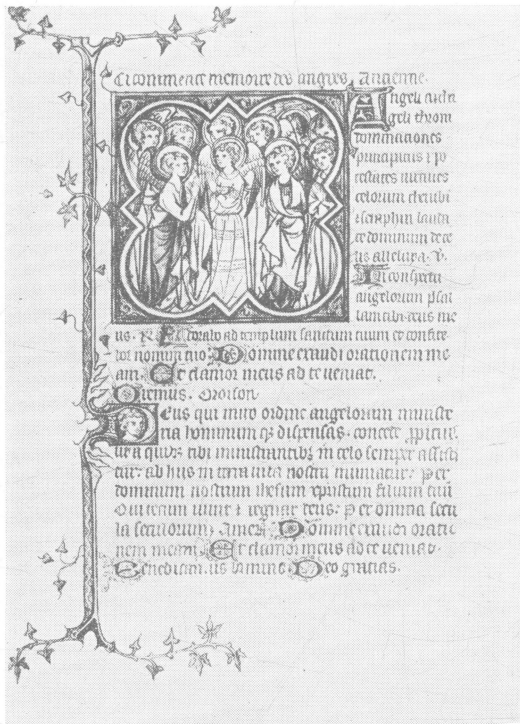 Ci commence memoire des angres. Antenne.
Angeli archā
geli throni
dominationes
principatus ⁊ po
testates virtutes
celorum cherubi
⁊ seraphin lauda
te dominum de ce
lis alleluya. V.
In conspectu
angelorum psal
lam tibi deus me
us. R. Adorabo ad templum sanctum tuum et confite
bor nomini tuo. Domine exaudi orationem me
am. Et clamor meus ad te veniat.
Oremus. Oroison.
Deus qui miro ordine angelorum ministe
ria hominum qȝ dispensas. concede ꝓpitius.
ut a quibȝ tibi ministrantibȝ in celo semper assisti
tur: ab hiis in terra vita nostra muniatur. Per
dominum nostrum ihesum xpistum filium tuū
Qui tecum vivit ⁊ regnat deus. Per omnia secu
la seculorum. Amen. Domine exaudi oratio
nem meam. Et clamor meus ad te veniat.
Benedicamus domino. Deo gratias.